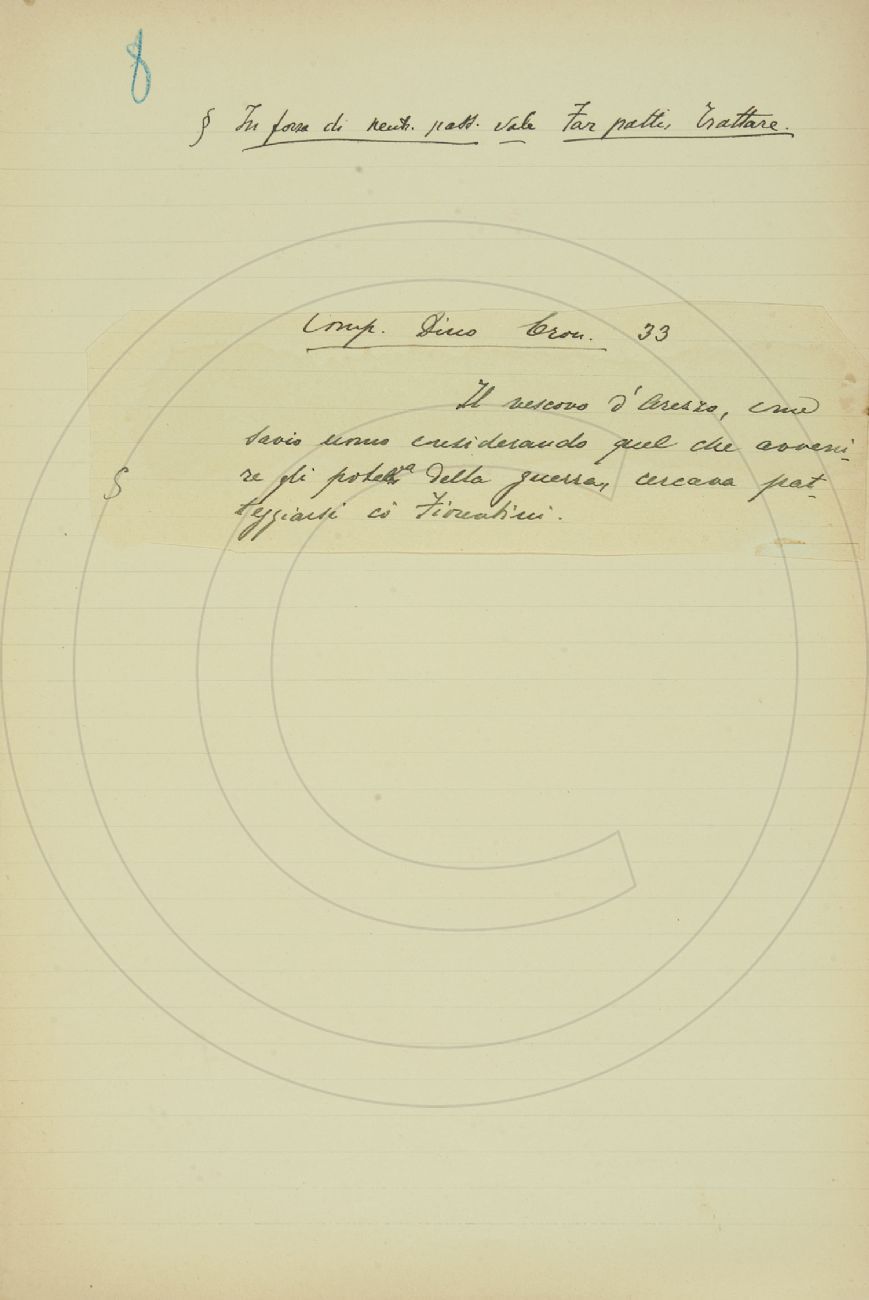 8
§ In forza di neutr. pass. vale Far patti, Trattare.
Comp. Dino Cron. 33
Il vescovo d'Arezzo, come
savio uomo considerando quel che avveni-
§ re gli potea della guerra, cercava pat-
teggiarsi co' Fiorentini.